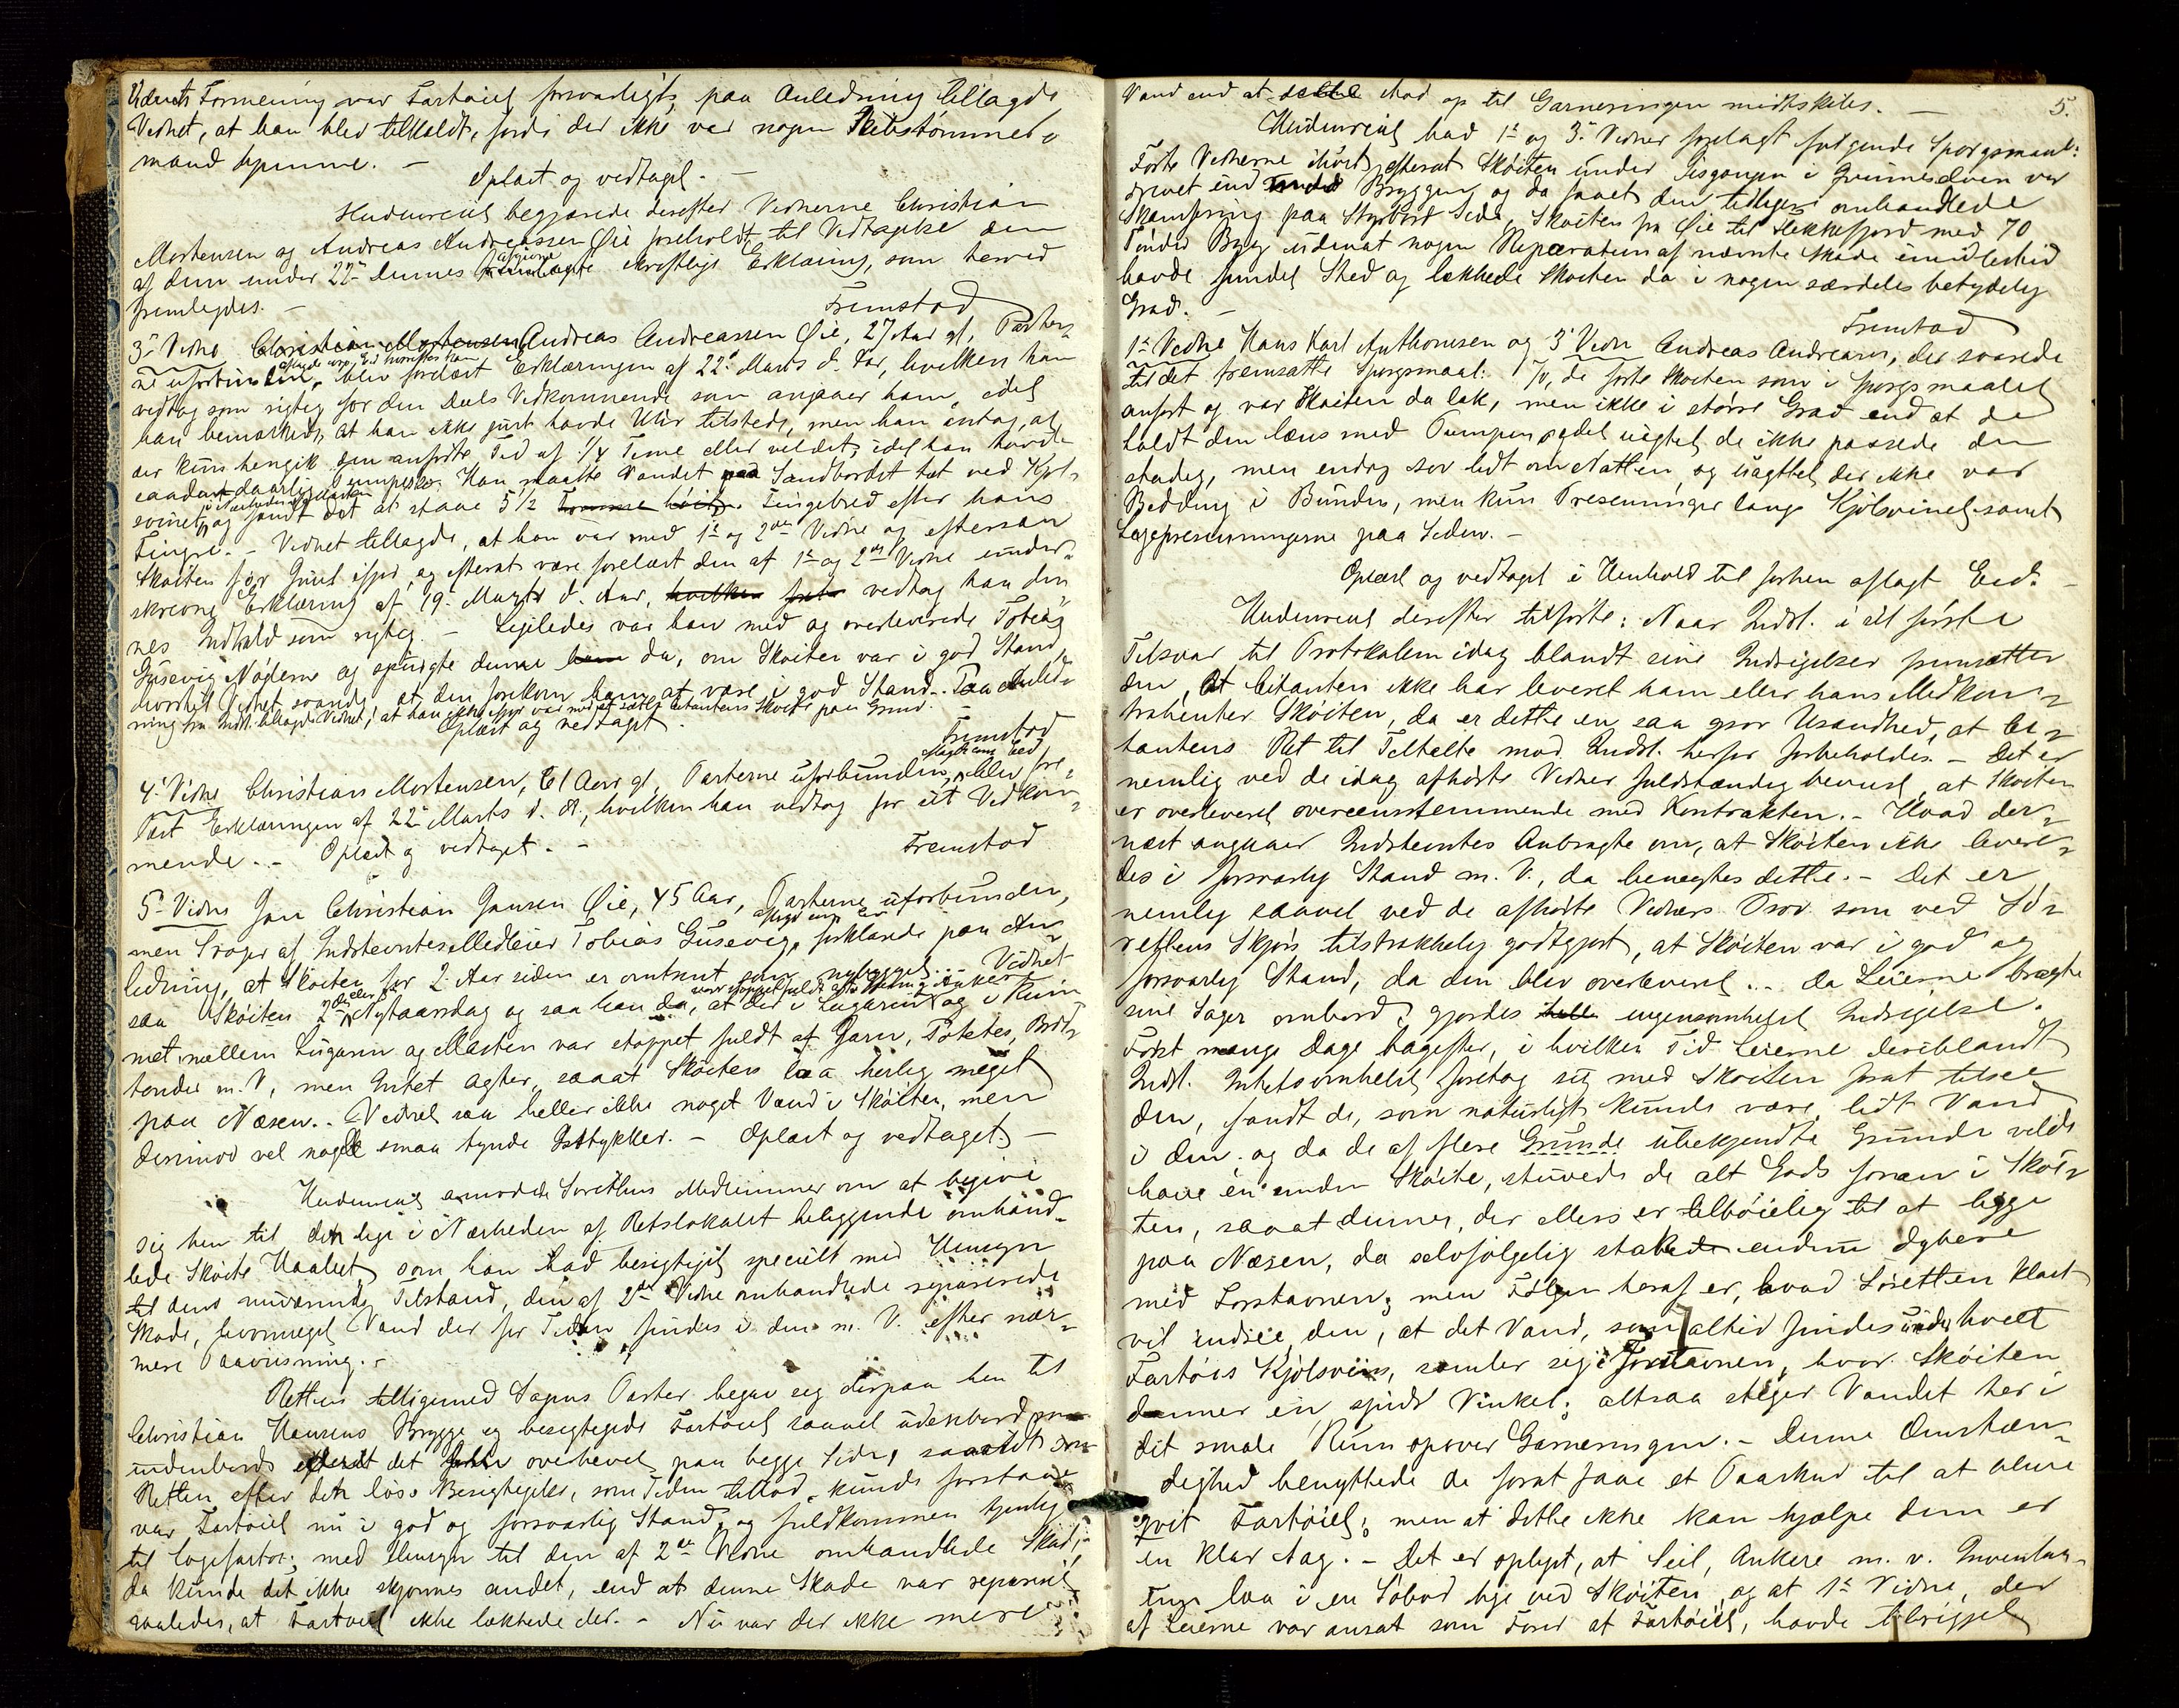 Vidnets Formening var Fartøiet forsvarligt, paa Anledning tillagde
Vidnet, at han blev tilkaldt, fordi der ikke var nogen Skibstømmer-
mand hjemme. -
Oplæst og vedtaget. -
Hudenreich begjærede derefter Vidnerne Christian
Mortensen og Andreas Andreassen Øie foreholdt til Vedtagelse den
af dem under 22de dennes afgivne skriftlige Erklæring, som herved
fremlegdes. -
Fremstod
3die Vidne Christian Mortensen Andreas Andreassen Øie, 27 Aar gl, Parter-
ne uforbunden, aflagde Eed hvorefter han blev forelæst Erklæringen af 22de Marts d. Aar, hvilken han
vedtog som rigtig for den Deels Vedkommende som angaaer ham, idet
han bemærkede, at han ikke just havde Uhr tilstede, men han antog, at
der kun hengik den anførte Tid af 1/4 Time eller vel det, idet han havde
saadant daarlig Pumpeskr. Han maatte Vandet paa Sandbordet tæt ved Kjøl-
svinet i Nærheden af Masten og fandt det at staae 5 1/2 Tomme høit Fingebred efter hans
Fingre. - Vidnet tillagde, at han var med 1ste og 2det Vidne og eftersaae
Skøiten før Juul ifjor, og efterat være forelæst den af 1ste og 2det Vidne under-
skrevne Erklæring af 19de Marts d. Aar, hvilken vedtog han den-
nes Indhold som rigtig. - Ligeledes var han med og overleverede Tobias
Gusevig Nøglerne og spurgte denne ham da, om Skøiten var i god Stand,
hvortil Vidnet svarede at den forekom ham at være i god Stand. - Paa Anled-
ning fra Indst. tillagde Vidnet, at han ikke ifjor var med at sætte Citantens Skøite paa Grund. -
Oplæst og vedtaget
Fremstod
4de Vidne Christian Mortensen, 61 Aar gl, Parterne uforbunden, aflagde Eed, blev fore-
læst Erklæringen af 22de Marts d. A., hvilken han vedtog for sit Vedkom-
mende. - Oplæst og vedtaget. -
Fremstod
5te Vidne Jan Christian Jansen Øie, 45 Aar, Parterne uforbunden,
men Svoger af Indstevntes Medleier Tobias Gusevig, aflagde Eed forklarede paa An-
ledning, at Skøiten for 2 Aar siden er omtrent som nybygget. Vidnet
saa Skøiten 2den Nytaarsdag og saa han da, at der i Lugaren og i Rum-
met mellem Lugaren og Masten var stoppet fuldt af Garn, Poteter, Brød-
tønder m. V, men Intet Agter, saaat Skøiten laa heelig meget
paa Næsen. - Vidnet saa heller ikke noget Vand i Skøiten, men
derimod vel nogle smaa tynde Isstykker. - Oplæst og vedtaget. -
Hudenreich anmodede Sørettens Medlemmer om at begive
sig hen til den lige i Nærheden af Retslokalet beliggende omhand-
lede Skøite Haabet, som han bad besigtiget specielt med Hensyn
til dens nuværende Tilstand, den af 2det Vidne omhandlede reparerede
Skade, hvormeget Vand der for Tiden findes i den m. V. efter nær-
mere Paaviisning. -
Retten tilligemed Sagens Parter begav sig derpaa hen til
Christian Hansens Brygge og besigtigede Fartøiet saavel udenbords som
indenbords efterat det blev overhevet paa begge Sider, saavidt som
Retten efter den løse Besigtigelse, som Tiden tillod, kunde forstaae
var Fartøiet nu i god og forsvarlig Stand, og fuldkommen tjenlig
til Logefartøi; med Hensyn til den af 2det Vidne omhandlede Skade,
da kunde det ikke skjønnes andet, end at denne Skade var repareret
saaledes, at Fartøiet ikke lækkede der. - Nu var der ikke mere
5.
Vand end at dette stod op til Garneringen midtskibs. -
Hudenreich bad 1ste og 3die Vidner forelagt følgende Spørgsmaal:
Førte Vidnerne ikke, efterat Skøiten under Iisgangen i Qvinesdøren var
drevet ind under Bryggen og da faaet den tidligere omhandlede
Skamfring paa Styrbord Side, Skøiten fra Øie til Flekkefjord med 70
Tønder Byg uden at nogen Reparation af nævnte Skade imidlertid
havde fundet Sted og lækkede Skøiten da i nogen særdeles betydelig
Grad. -
Fremstod
1ste Vidne Hans Karl Anthonisen og 3die Vidne Andreas Andreasen, der svarede
til det fremsatte Spørgsmaal: Jo, de førte Skøiten som i Spørgsmaalet
anført og var Skøiten da læk, men ikke i større Grad end at de
holdt den læns med Pumpen, og det uagtet de ikke passede den
stadig, men endog sov lidt om Natten, og uagtet der ikke var
Bedding i Bunden, men kun Presenninger langs Kjølsvinet samt
Logepresenningerne paa Siden. -
Oplæst og vedtaget i Henhold til forhen aflagt Eed. -
Hudenreich derefter tilførte: Naar Indst. i sit første
Tilsvar til Protokollen idag blandt sine Indsigelser fremsætter
den, at Citanten ikke har leveret ham eller hans Medkon-
trahenter Skøiten, da er dette en saa grov Usandhed, at Ci-
tantens Ret til Tiltale mod Indst. herfor forbeholdes. - Det er
nemlig ved de idag afhørte Vidner fuldstændig beviist, at Skøiten
er overleveret overeensstemmende med Kontrakten. - Hvad der-
næst angaaer Indstevntes Anbragte om, at Skøiten ikke levere-
des i forsvarlig Stand m. V., da benegtes dette. - Det er
nemlig saavel ved de afhørte Vidners Prov som ved Sø-
rettens Skjøn tilstrækkelig godtgjort, at Skøiten var i god og
forsvarlig Stand, da den blev overleveret. - da Leierne bragte
sine Sager ombord, gjordes ingensomhelst Indsigelse.
Først mange Dage bagefter, i hvilken Tid Leierne deriblandt
Indst. Intetsomhelst foretog sig med Skøiten forat tilsee
den, fandt de, som naturligt kunde være, lidt Vand
i den, og da de af flere Grunde ubekjendte Grunde vilde
have en anden Skøite, stuvede de alt Gods foran i Skøi-
ten, saaat denne, der ellers er tilbøielig til at ligge
paa Næsen, da selvfølgelig stak endnu dybere
med Forstavnen; men Følgen heraf er, hvad Søretten klart
vil indsee, den, at det Vand, som altid findes under hvert
Fartøis Kjølsviin, samler sig i Forstavnen, hvor Skøiten
danner en spids Vinkel; altsaa stiger Vandet her i
dit smale Rum opover Garneringen. - Denne Omstæn-
dighed benyttede de forat faae et Paaskud til at blive
qvit Fartøiet; men at dette ikke kan hjælpe dem er
en klar Sag. - Det er oplyst, at Seil, Ankere m. v. Inventa-
rium laa i en Søbod lige ved Skøiten, og at 1ste Vidne, der
af Leierne var ansat som Fører af Fartøiet, havde tilrigget